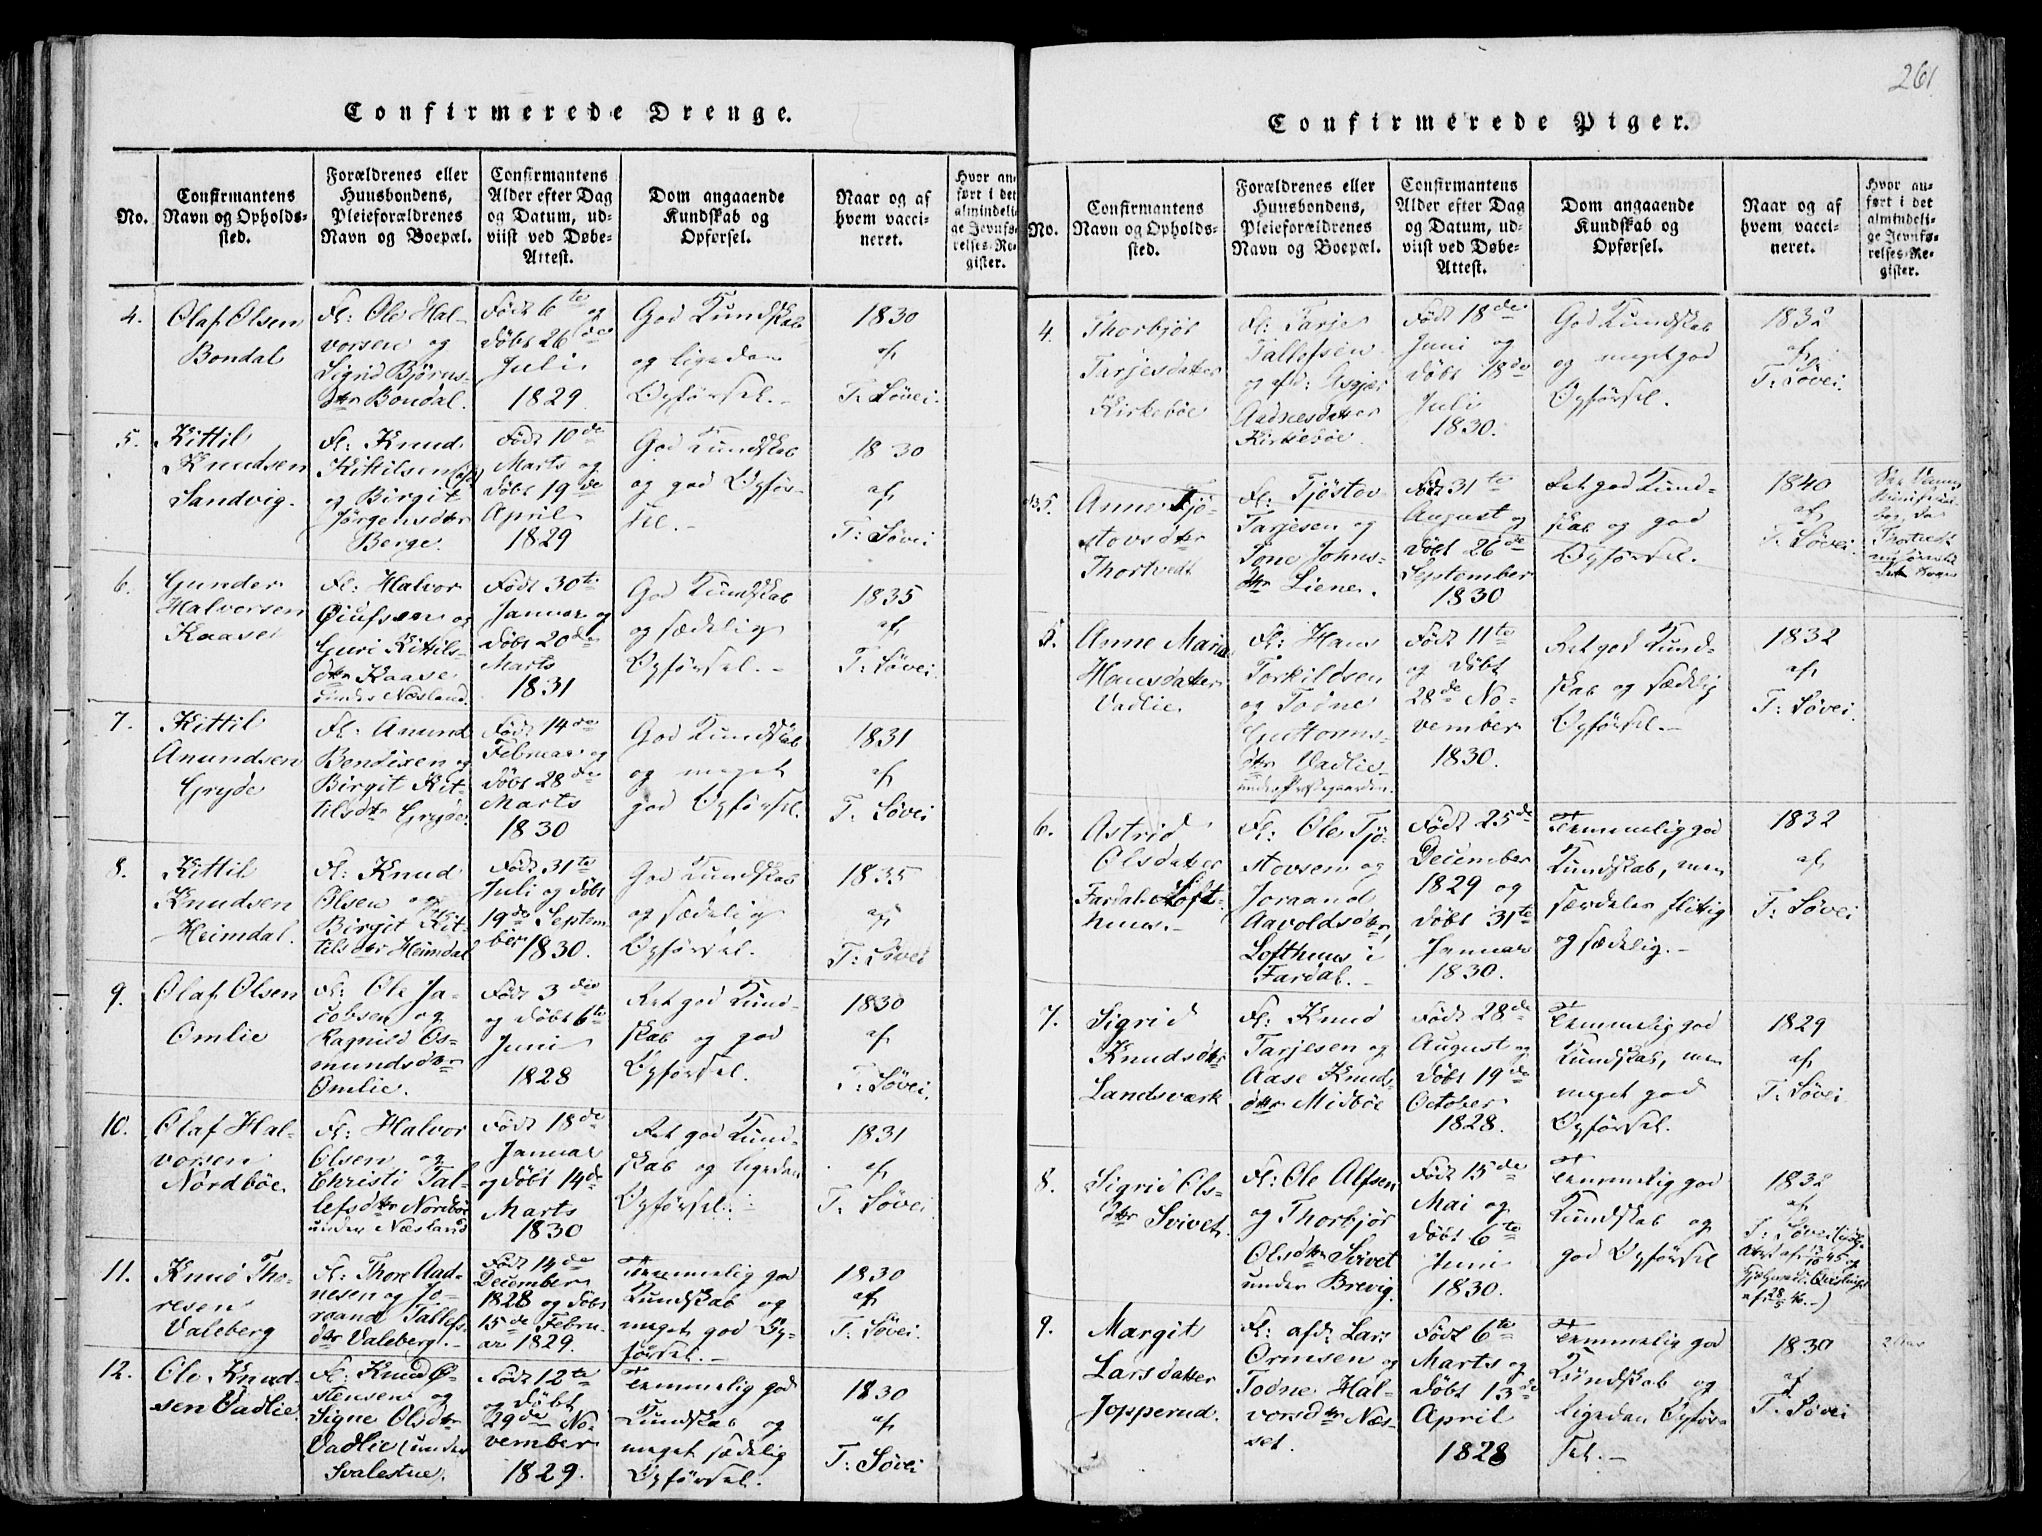 261
Confirmerede Drenge.
No.
Confirmantens
Navn og Opholds-
sted.
Forældrenes eller
Huusbondens,
Pleieforældrenes
Navn og Boepæl.
Confirmantens
Alder efter Dag
og Datum, ud-
viist ved Døbe-
Attest.
Dom angaaende
Kundskab og
Opførsel.
Naar og af
hvem vacci-
neret.
Hvor an-
ført i det
almindeli-
ge Jevnfø-
relses-Re-
gister.
4.
Olaf Olsen
Bondal
Fl: Ole Hal-
vorsen og
Sigrid Bjørns-
dtr Bondal.
Født 6te og
døbt 26de
Juli
1829
God Kundskab
og ligedan
Opførsel.-
1830
af
T. Søvei.
5.
Kittil
Knudsen
Sandvig.
Fl: Knud
Kittilsen
og Birgit
Jørgensdtr
Berge.
Født 10de
Marts og
døbt 19de
April
1829
God Kundskab
og god Opfør-
sel.-
1830
af
T: Søvei
6.
Gunder
Halvorsen
Kaase
Fl: Halvor
Øiufsen og
Guri Kittils-
dtr Kaase
under Næsland.
Født 30te
Januar og
døbt 20de
Marts
1831
God Kundskab
og sædelig
Opførsel.-
1835
af
T: Søvei.
7.
Kittil
Amundsen
Gryde
Fl: Amund
Bendixen og
Birgit Kit-
tilsdtr Gryde.
Født 14de
Februar og
døbt 28de
Marts
1830
God Kundskab
og meget
god Opførsel.
1831
af
T. Søvei
8.
Kittil
Knudsen
Heimdal.
Fl: Knud
Olsen og
Birgit Kit-
tilsdtr Heimdal
Født 31te
Juli og døbt
19de Septem-
ber 1830.
God Kundskab
og sædelig
Opførsel.
1835
af
T: Søvei
9.
Olaf Olsen
Omlie
Fl: Ole Ja-
cobsen og
Ragnild Os-
mundsdtr
Omlie.
Født 3die
og døbt 6te
Juni
1828
Ret god Kund-
skab og god
Opførsel.
1830
af
T: Søvei.
10.
Olaf Hal-
vorsen
Nordbøe.
Fl: Halvor
Olsen og
Christi Tal-
lefsdtr Nordbøe
under Næsland
Født 18de
Januar
og døbt 14de
Marts
1830
Ret god Kund-
skab og ligedan
Opførsel.-
1831
af
T. Søvei.
11.
Knud Tho-
resen
Valeberg
Fl: Thore Aad-
nesen og Jo-
raand Tallefs-
dtr Valeberg.-
Født 14de
December
1828 og døbt
15de Febru-
ar 1829.
Temmelig god
Kundskab og
meget god Op-
førsel.-
1830
af
T: Søvei.
12.
Ole Knud-
sen Vadlie.
Fl: Knud Ø-
stensen og
Signe Olsdtr
Vadlie (under
Svalestue.
Født 12te
og døbt
29de No-
vember
1829.
Temmelig god
Kundskab og
meget sædelig
Opførsel.
1830
af
T: Søvei
Confirmerede Piger.
No.
Confirmantens
Navn og Opholds-
sted.
Forældrenes eller
Huusbondens,
Pleieforældrenes
Navn og Boepæl.
Confirmantens
Alder efter Dag
og Datum, ud-
viist ved Døbe-
Attest.
Dom angaaende
Kundskab og
Opførsel.
Naar og af
hvem vacci-
neret.
Hvor an-
ført i det
almindeli-
ge Jevnfø-
relses-Re-
gister.
4.
Thorbjør
Tarjesdatter
Kirkebøe
Fl: Tarje
Tallefsen
og afd: Asgjer
Aadnesdatter
Kirkebøe.
Født 18de
Juni og
døbt 18de
Juli
1830.
God Kundskab
og meget god
Opførsel.
1832
af
T: Søvei.
5.
Anne Tjø-
stovsdtr
Thortvedt
Fl: Tjøstov
Tarjesen og
Tone Johns-
dtr Liene.
Født 31te
August og
døbt 26de
September
1830
Ret god Kund-
skab og god
Opførsel.
1840
af
T. Søvei.
5.
Anne Maria
Hansdatter
Vadlie.
Fl: Hans
Torkildsen
og Todne
Guttorms-
dtr Vadlie-
under Præstegaarden.
Født 11te
og døbt
28de No-
vember
1830.
Ret god Kund-
skab og sædelig
Opførsel.-
1832
af
T: Søvei.
6.
Astrid
Olsdatter
Fardal Loft-
huus.-
Fl: Ole Tjø-
stovsen og
Joraand
Aavoldsdtr,
Lofthuus i
Fardal.-
Født 25de
December
1829 og
døbt 31te
Januar
1830.
Temmelig god
Kundskab, men
særdeles flittig
og sædelig.-
1832
af
T: Søvei
7.
Sigrid
Knudsdtr
Landsværk
Fl: Knud
Tarjesen og
Aase Knuds-
dtr Midbøe
Født 28de
August og
døbt 19de
October
1828.
Temmelig god
Kundskab, men
meget god
Opførsel.
1829
af
T: Søvei
8.
Sigrid Ols-
dtr Svivet.
Fl: Ole Alfsen
og Thorbjør
Olsdtr Svivet
under Brevig.
Født 15de
Mai og
døbt 6te
Juni
1830.
Temmelig god
Kundskab og
god Opførsel
1832
af
T: Søvei
9.
Margit
Larsdatter
Jopperud.
Fl: afd: Lars
Ormsen og
Todne Hal-
vorsdtr Næs-
set.
Født 6te
Marts og
døbt 13de
April
1828
Temmelig god
Kundskab og
ligedan Opfør-
sel.-
1830
af
T. Søvei